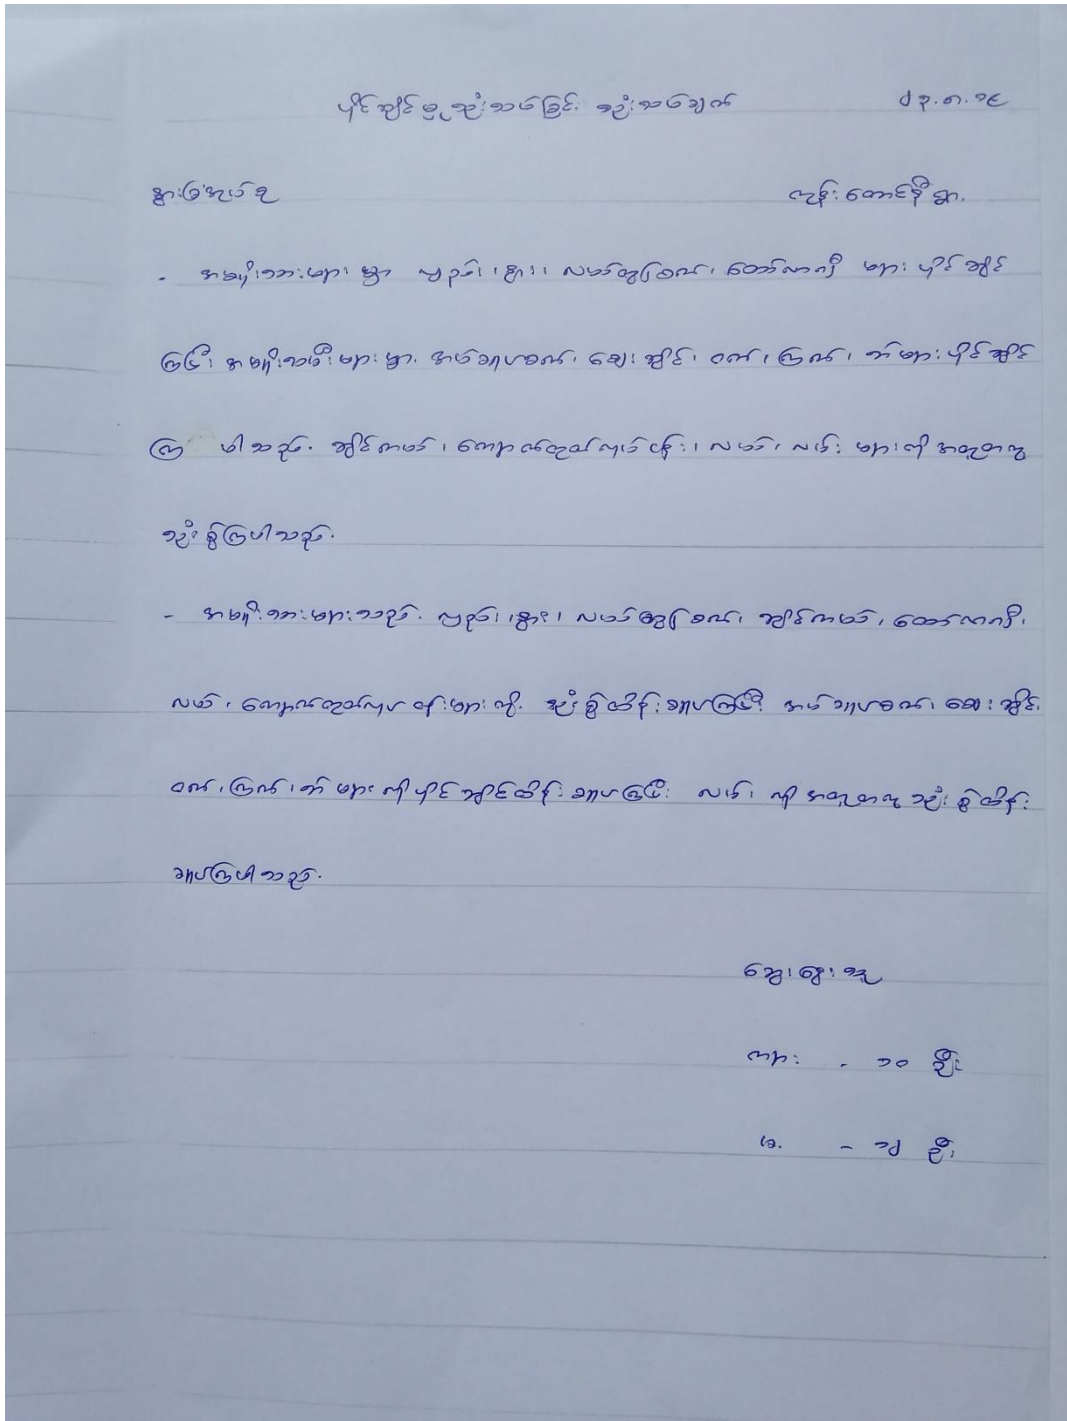 ပိုင်ဆိုင်မှု သုံးသပ်ခြင်း သုံးသပ်ချက် ၂၃.၈.၁၉
နွားမြဲအုပ်စု ကုန်းတောင်နီရွာ.
- အမျိုးသားများမှာ လှည်း၊ နွား၊ လယ်ထွန်စက်၊ တော်လာဂျီ များ ပိုင်ဆိုင်
ကြပြီး အမျိုးသမီးများမှာ. အပ်ချုပ်စက်၊ ဈေးဆိုင်၊ ဝက်၊ ကြက်၊ ဘဲများ ပိုင်ဆိုင်
ကြ ပါသည်. ဆိုင်ကယ်၊ ကျောက်ထုတ်လုပ်ငန်း၊ လယ်၊ လယ်း များကို အတူတကွ
သုံးစွဲကြပါသည်.
- အမျိုးသားများသည်. လှည်း၊ နွား၊ လယ်ထွန်စက်၊ ဆိုင်ကယ်၊ တော်လာဂျီ၊
လယ်၊ ကျောက်ထုတ်လုပ်ငန်းများကို. သုံးစွဲထိန်းချုပ်ကြပြီး အပ်ချုပ်စက်၊ ဈေးဆိုင်၊
ဝက်၊ ကြက်၊ ဘဲ များကို ပိုင်ဆိုင်ထိန်းချုပ်ကြပြီး လယ်း ကို အတူတကွ သုံးစွဲထိန်း
ချုပ်ကြပါသည်.
ဆွေးနွေးသူ
ကျား - ၁၀ ဦး
မ. - ၁၂ ဦး